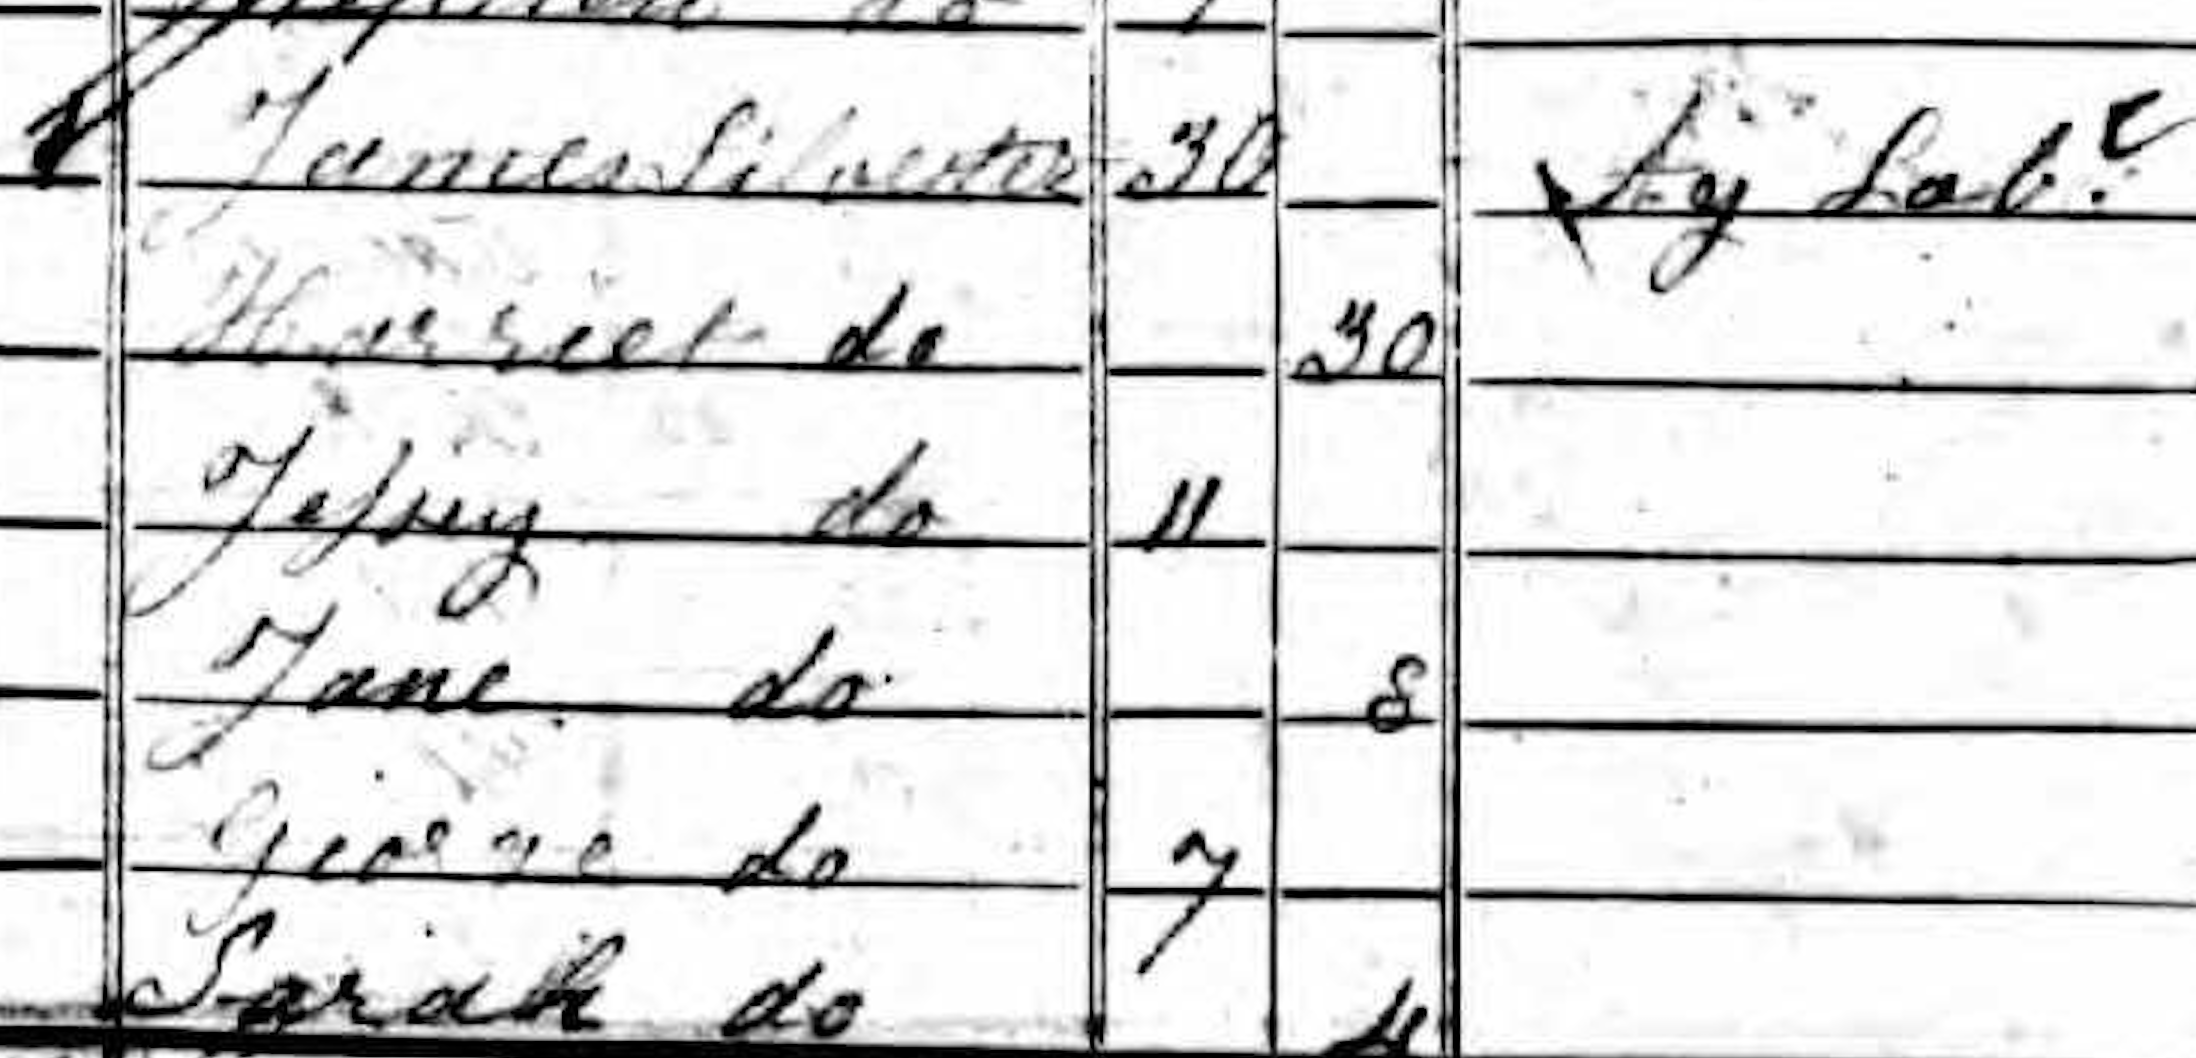 do
James Silvester 30 Ag Labr
Harriet do 30
Jessey do 11
Jane do 8
George do 7
Sarah do 4